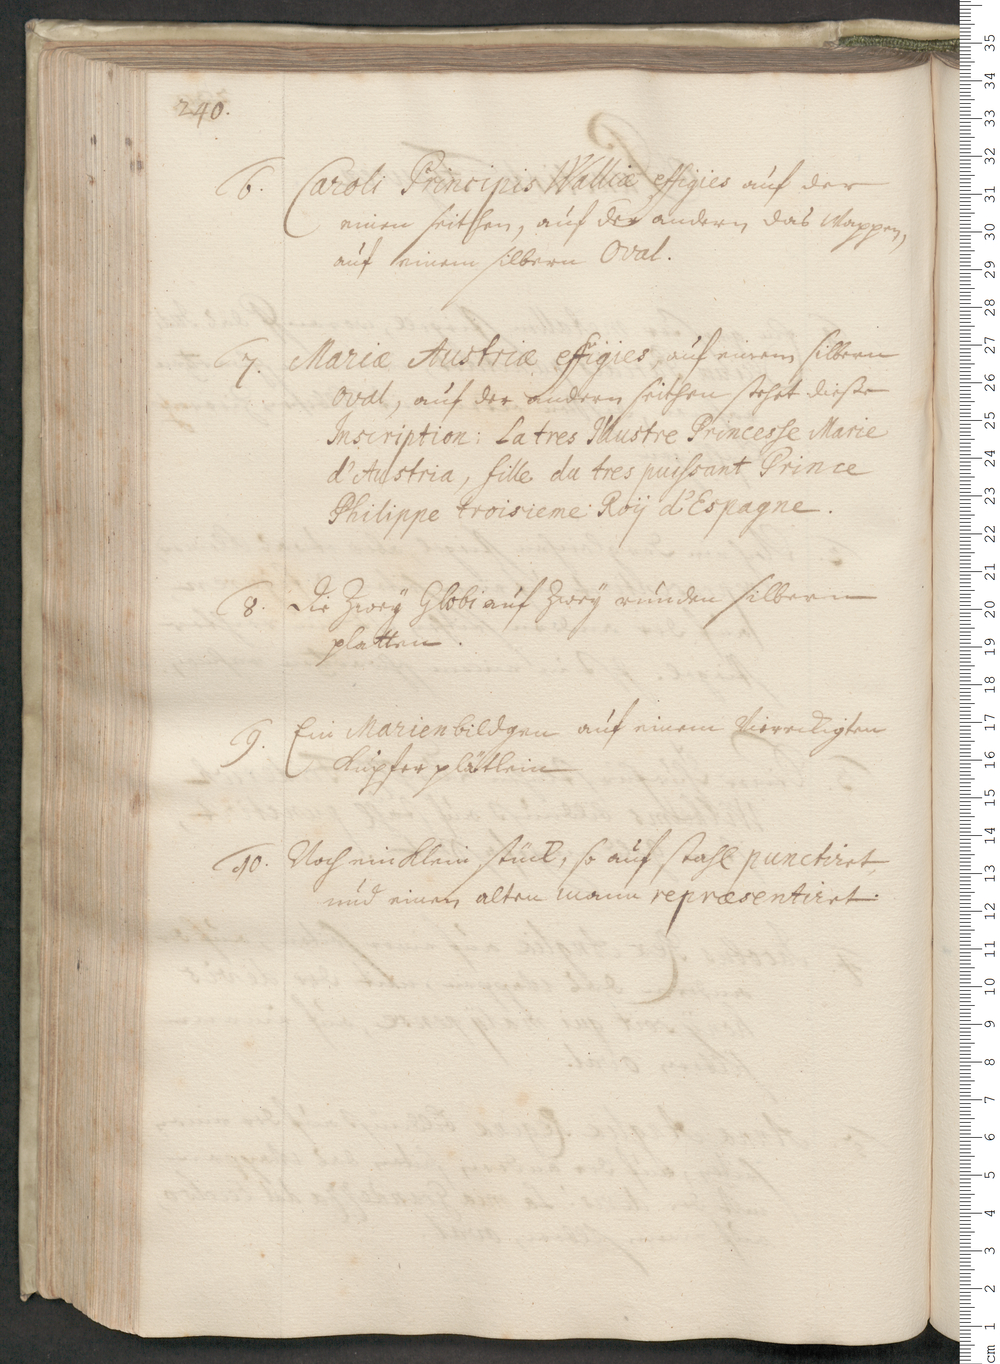 240.
6. Caroli Principis Walliæ effigies auf der
einen seithen, auf der andern das Wappen,
auf einem silbern Oval.
7. Mariæ Austriæ effigies auf einem silbern
Oval, auf der andern seithen stehet diese
Inscription: La tres Illustre Princesse Marie
d'Austria, fille du tres puissant Prince
Philippe troisieme Roÿ d'Espagne.
8. Die Zweÿ Globi auf Zweÿ runden silbern
platten.
9. Ein Marienbildgen auf einem Viereckigten
Kupfer plätlein
10. Noch ein klein stück, so auf stahl punctiret,
und einen alten mann repræsentiret.